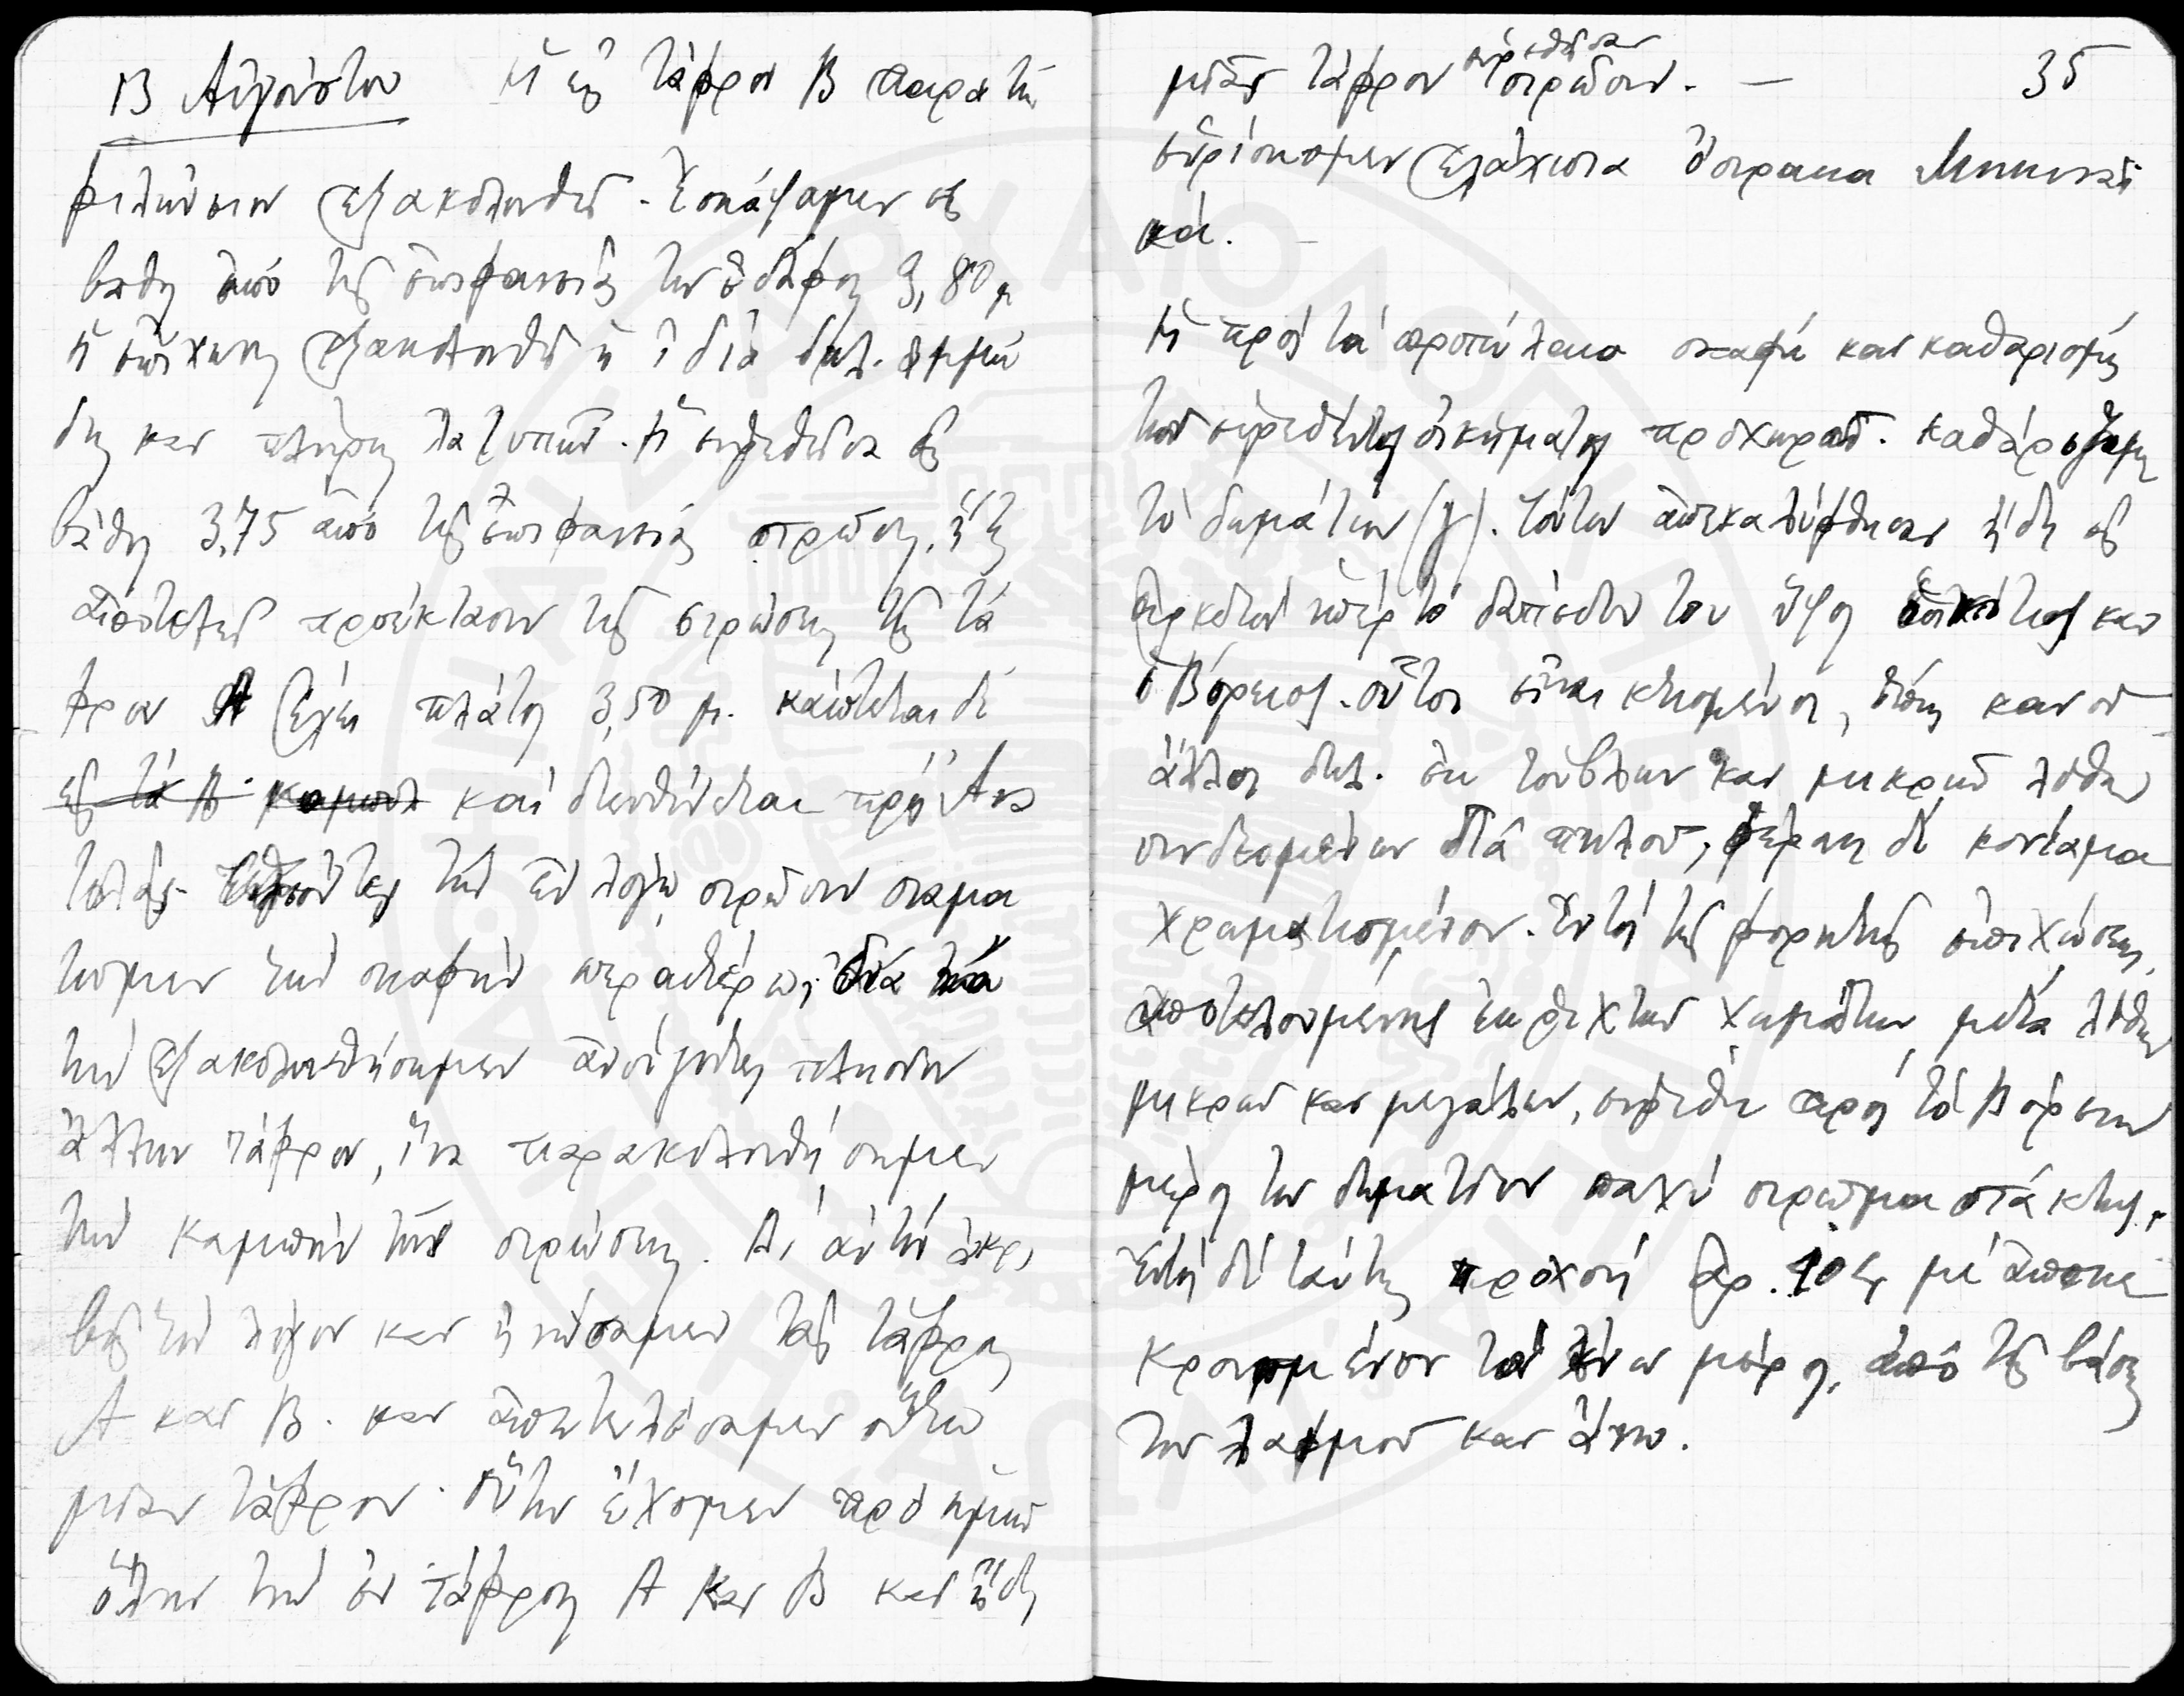 13 Αὐγούστου Ἡ εἰς τάφρον Β παρατή
ἐξακολουθεῖ. Ἐσκάψαμεν εἰς
βάθος ἀπὸ τῆς ἐπιφανείας τοῦ ἐδάφους 3,80 μ
ἡ ἐπίχωσις ἐξακολουθεῖ ἡ ἰδία δηλ. ἀμμώ
δης καὶ πλήρης λατυπῶν. Ἡ εὑρεθεῖσα εἰς
βάθος 3,75 ἀπὸ τῆς ἐπιφανείας στρῶσις, ἥτις
ἀποτελεῖ προέκτασιν τῆς στρώσεως τῆς τά
φρου Α ἔχει πλάτος 3,50 μ. κάμπτεται δὲ
εἰς τὰ Β καμπυλ καὶ διευθύνεται πρὸς Ἀνα
τολάς. τὴν ἐν λόγῳ στρῶσιν σταμα
τῶμεν τὴν σκαφὴν περαιτέρω, διὰ νὰ
τὴν ἐξακολουθήσωμεν ἀνοίγοντες πλησίον
ἄλλην τάφρον, ἵνα παρακολουθήσωμεν
τὴν καμπὴν τῆς στρώσεως. Δι' αὐτὸν ἀκρι
βῶς τὸν λόγον καὶ ἡνώσαμεν τὰς τάφρους
Α καὶ Β. καὶ ἀπετελέσαμεν οὕτω
μίαν τάφρον. Οὕτω ἔχομεν πρὸ ἡμῶν
ὅλην τὴν ἐν τάφροις Α καὶ Β καὶ ἤδη
μίαν τάφρον εὑρεθεῖσαν στρῶσιν. — 35
Εὑρίσκομεν ἐλάχιστα ὄστρακα Μυκηναϊ
κά. —
Ἡ πρὸς τὰ προπύλαια σκαφὴ καὶ καθαρισμὸς
τοῦ εὑρεθέντος οἰκήματος προχωρεῖ. Καθαρίζομεν
τὸ δωμάτιον (γ). Τούτου ἀπεκαλύφθησαν ἤδη εἰς
ἀρκετὸν ὑπὲρ τὸ δάπεδόν του ὕψος ὁ νότιος καὶ
ὁ Βόρειος. οὗτοι εἶναι κτισμένοι, ὅπως καὶ οἱ
ἄλλοι δηλ. ἐκ τούβλων καὶ μικρῶν λίθων
συνδεομένων διὰ πηλοῦ, φέρουν δὲ κονίαμα
χρωματισμένον. Ἐντὸς τῆς φορητῆς ἐπιχώσεως,
ἀποτελουμένης ἐκ ριχτῶν χωμάτων μετὰ λίθων
μικρῶν καὶ μεγάλων, εὑρέθη πρὸς τὸ Βόρειον
μέρος τοῦ δωματίου παχὺ στρῶμα στάκτης.
Ἐντὸς δὲ ταύτης προχοὴ ἀρ. 104 μὲ ἀποκε
κρουμένον τὸ ἄνω μέρος, ἀπὸ τῆς βάσεως
τοῦ λαιμοῦ καὶ ἄνω.